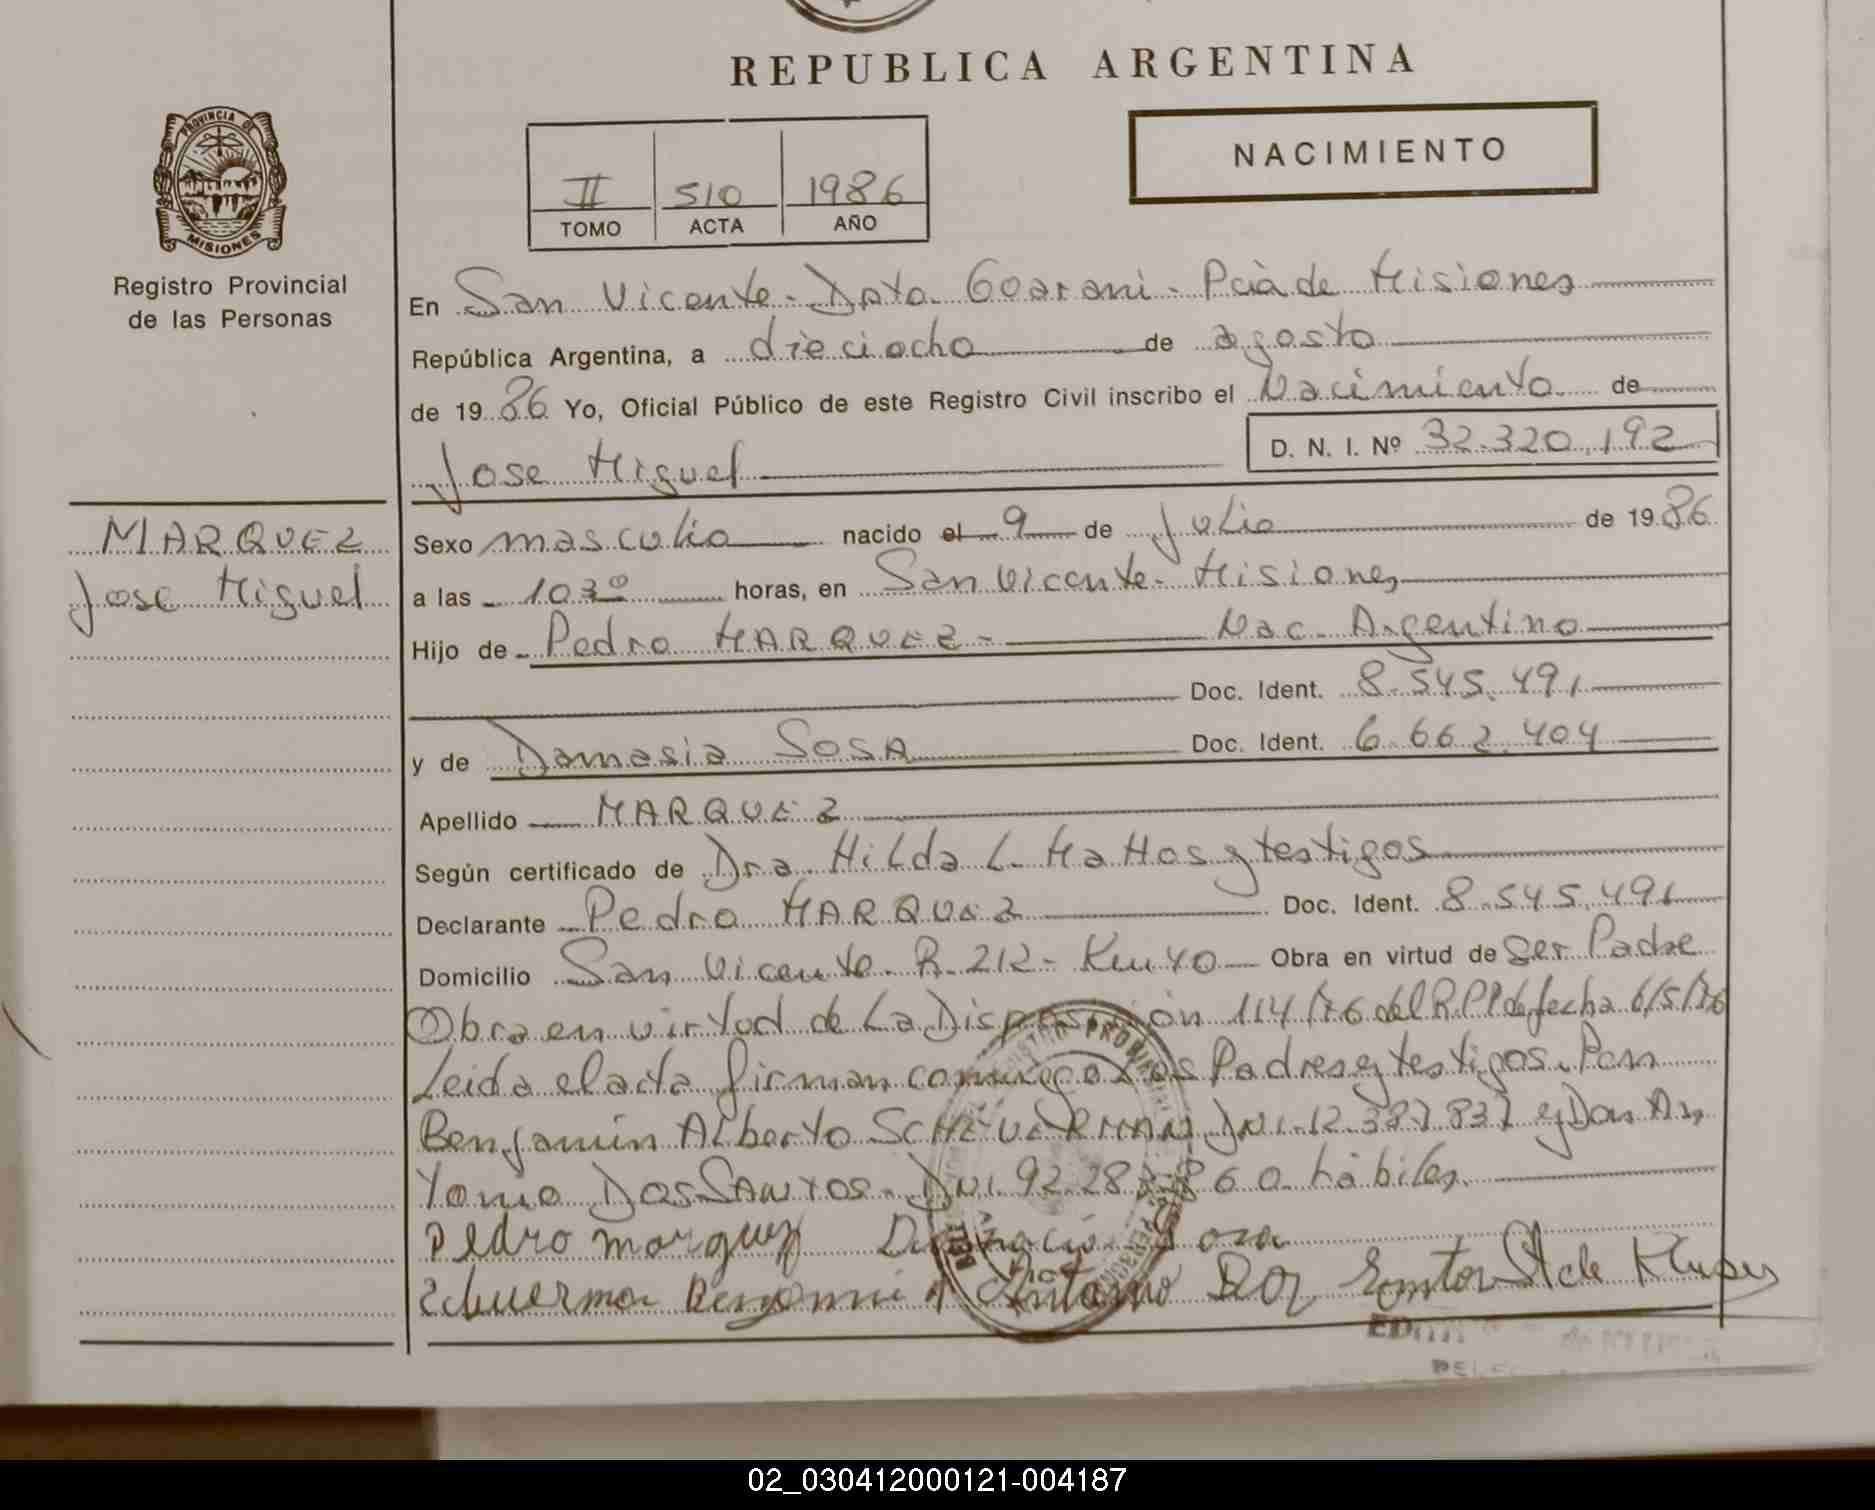 REPUBLICA ARGENTINA
NACIMIENTO
II 510 1986
TOMO ACTA AÑO
PROVINCIA DE
MISIONES
Registro Provincial
de las Personas
MARQUEZ
Jose Miguel
En San Vicente - Dpto. Guarani - Pcia de Misiones
República Argentina, a dieciocho de agosto
de 1986 Yo, Oficial Público de este Registro Civil inscribo el Nacimiento de
Jose Miguel D. N. I. Nº 32.320.192
Sexo masculio nacido el 9 de Julio de 1986
a las 1030 horas, en San Vicente - Misiones
Hijo de Pedro MARQUEZ - Nac. Argentino
Doc. Ident. 8.545.491
y de Damasia SOSA Doc. Ident. 6.662.404
Apellido MARQUEZ
Según certificado de Dra. Hilda L. Mattos y testigos
Declarante Pedro MARQUEZ Doc. Ident. 8.545.491
Domicilio San Vicente R. 212 - Km 40 Obra en virtud de Ser Padre
Obra en virtud de La Disposición 114/76 del R.P.P de fecha 6/5/76
Leida el acta firman conmigo Los Padres y testigos
Benjamin Alberto DNI. 12.387.837 y Don An
tonio Dos SANTOS - DNI 92.28 860 hábiles
Pedro Marquez
Antonio Dos
02_030412000121-004187